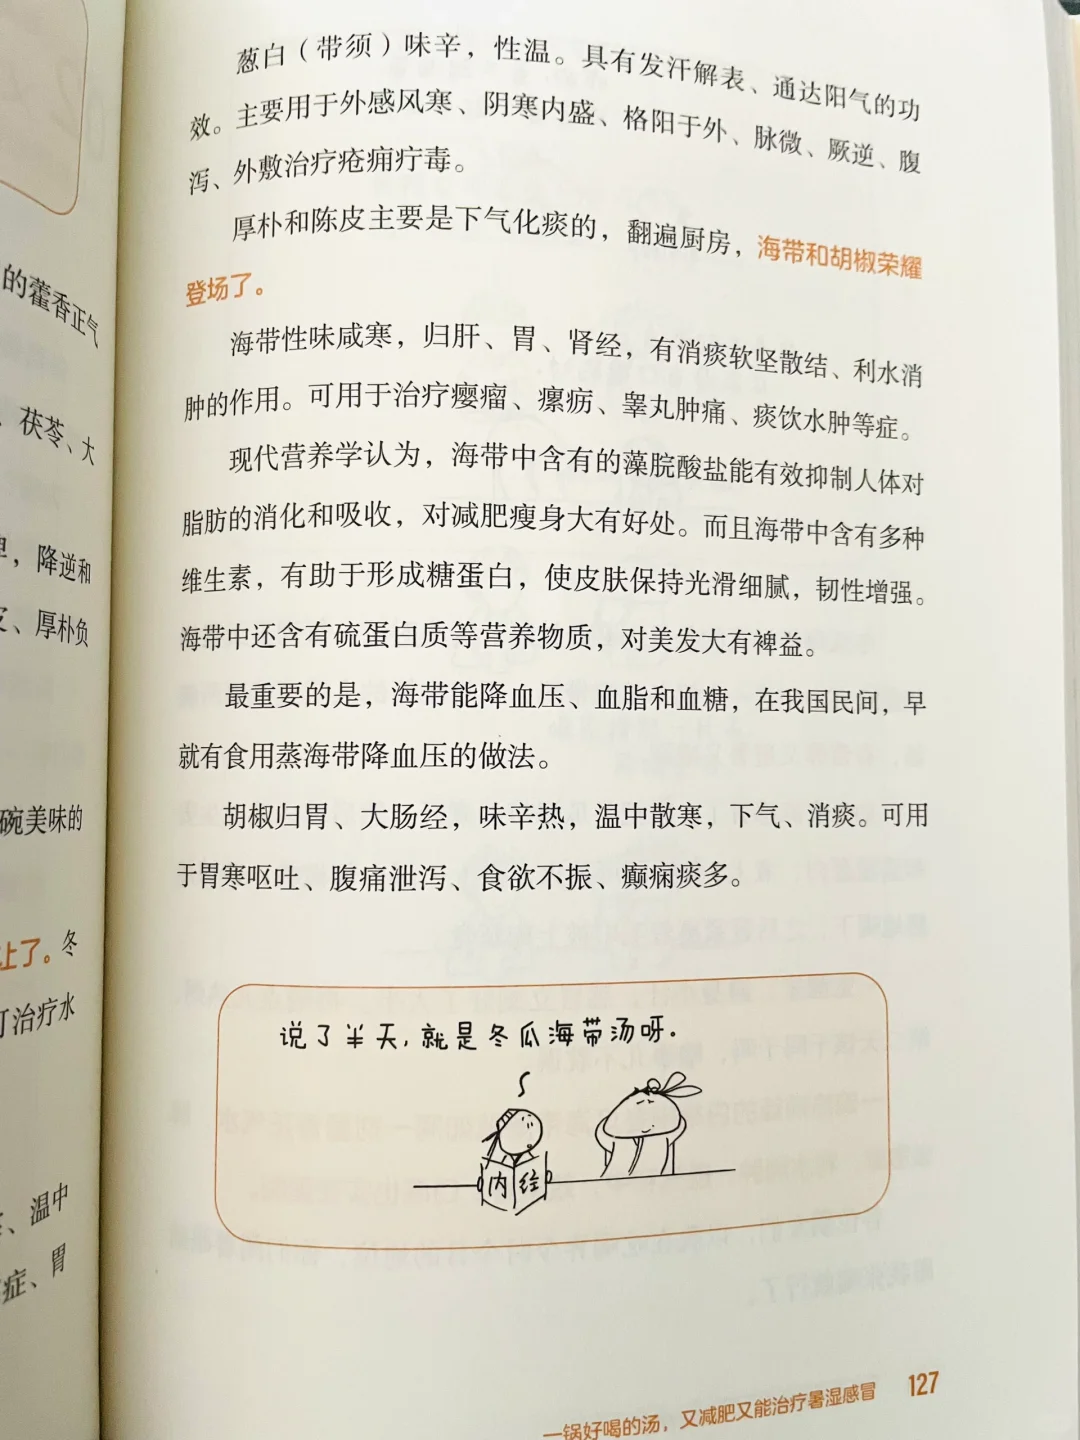 的藿香正气
、茯苓、大
，降逆和
、厚朴负
碗美味的
上了。冬
可治疗水
、温中
症、胃
葱白（带须）味辛，性温。具有发汗解表、通达阳气的功
效。主要用于外感风寒、阴寒内盛、格阳于外、脉微、厥逆、腹
泻、外敷治疗疮痈疔毒。
厚朴和陈皮主要是下气化痰的，翻遍厨房，海带和胡椒荣耀
登场了。
海带性味咸寒，归肝、胃、肾经，有消痰软坚散结、利水消
肿的作用。可用于治疗瘿瘤、瘰疬、睾丸肿痛、痰饮水肿等症。
现代营养学认为，海带中含有的藻朊酸盐能有效抑制人体对
脂肪的消化和吸收，对减肥瘦身大有好处。而且海带中含有多种
维生素，有助于形成糖蛋白，使皮肤保持光滑细腻，韧性增强。
海带中还含有硫蛋白质等营养物质，对美发大有裨益。
最重要的是，海带能降血压、血脂和血糖，在我国民间，早
就有食用蒸海带降血压的做法。
胡椒归胃、大肠经，味辛热，温中散寒，下气、消痰。可用
于胃寒呕吐、腹痛泄泻、食欲不振、癫痫痰多。
说了半天，就是冬瓜海带汤呀。
内经
一锅好喝的汤，又减肥又能治疗暑湿感冒 127